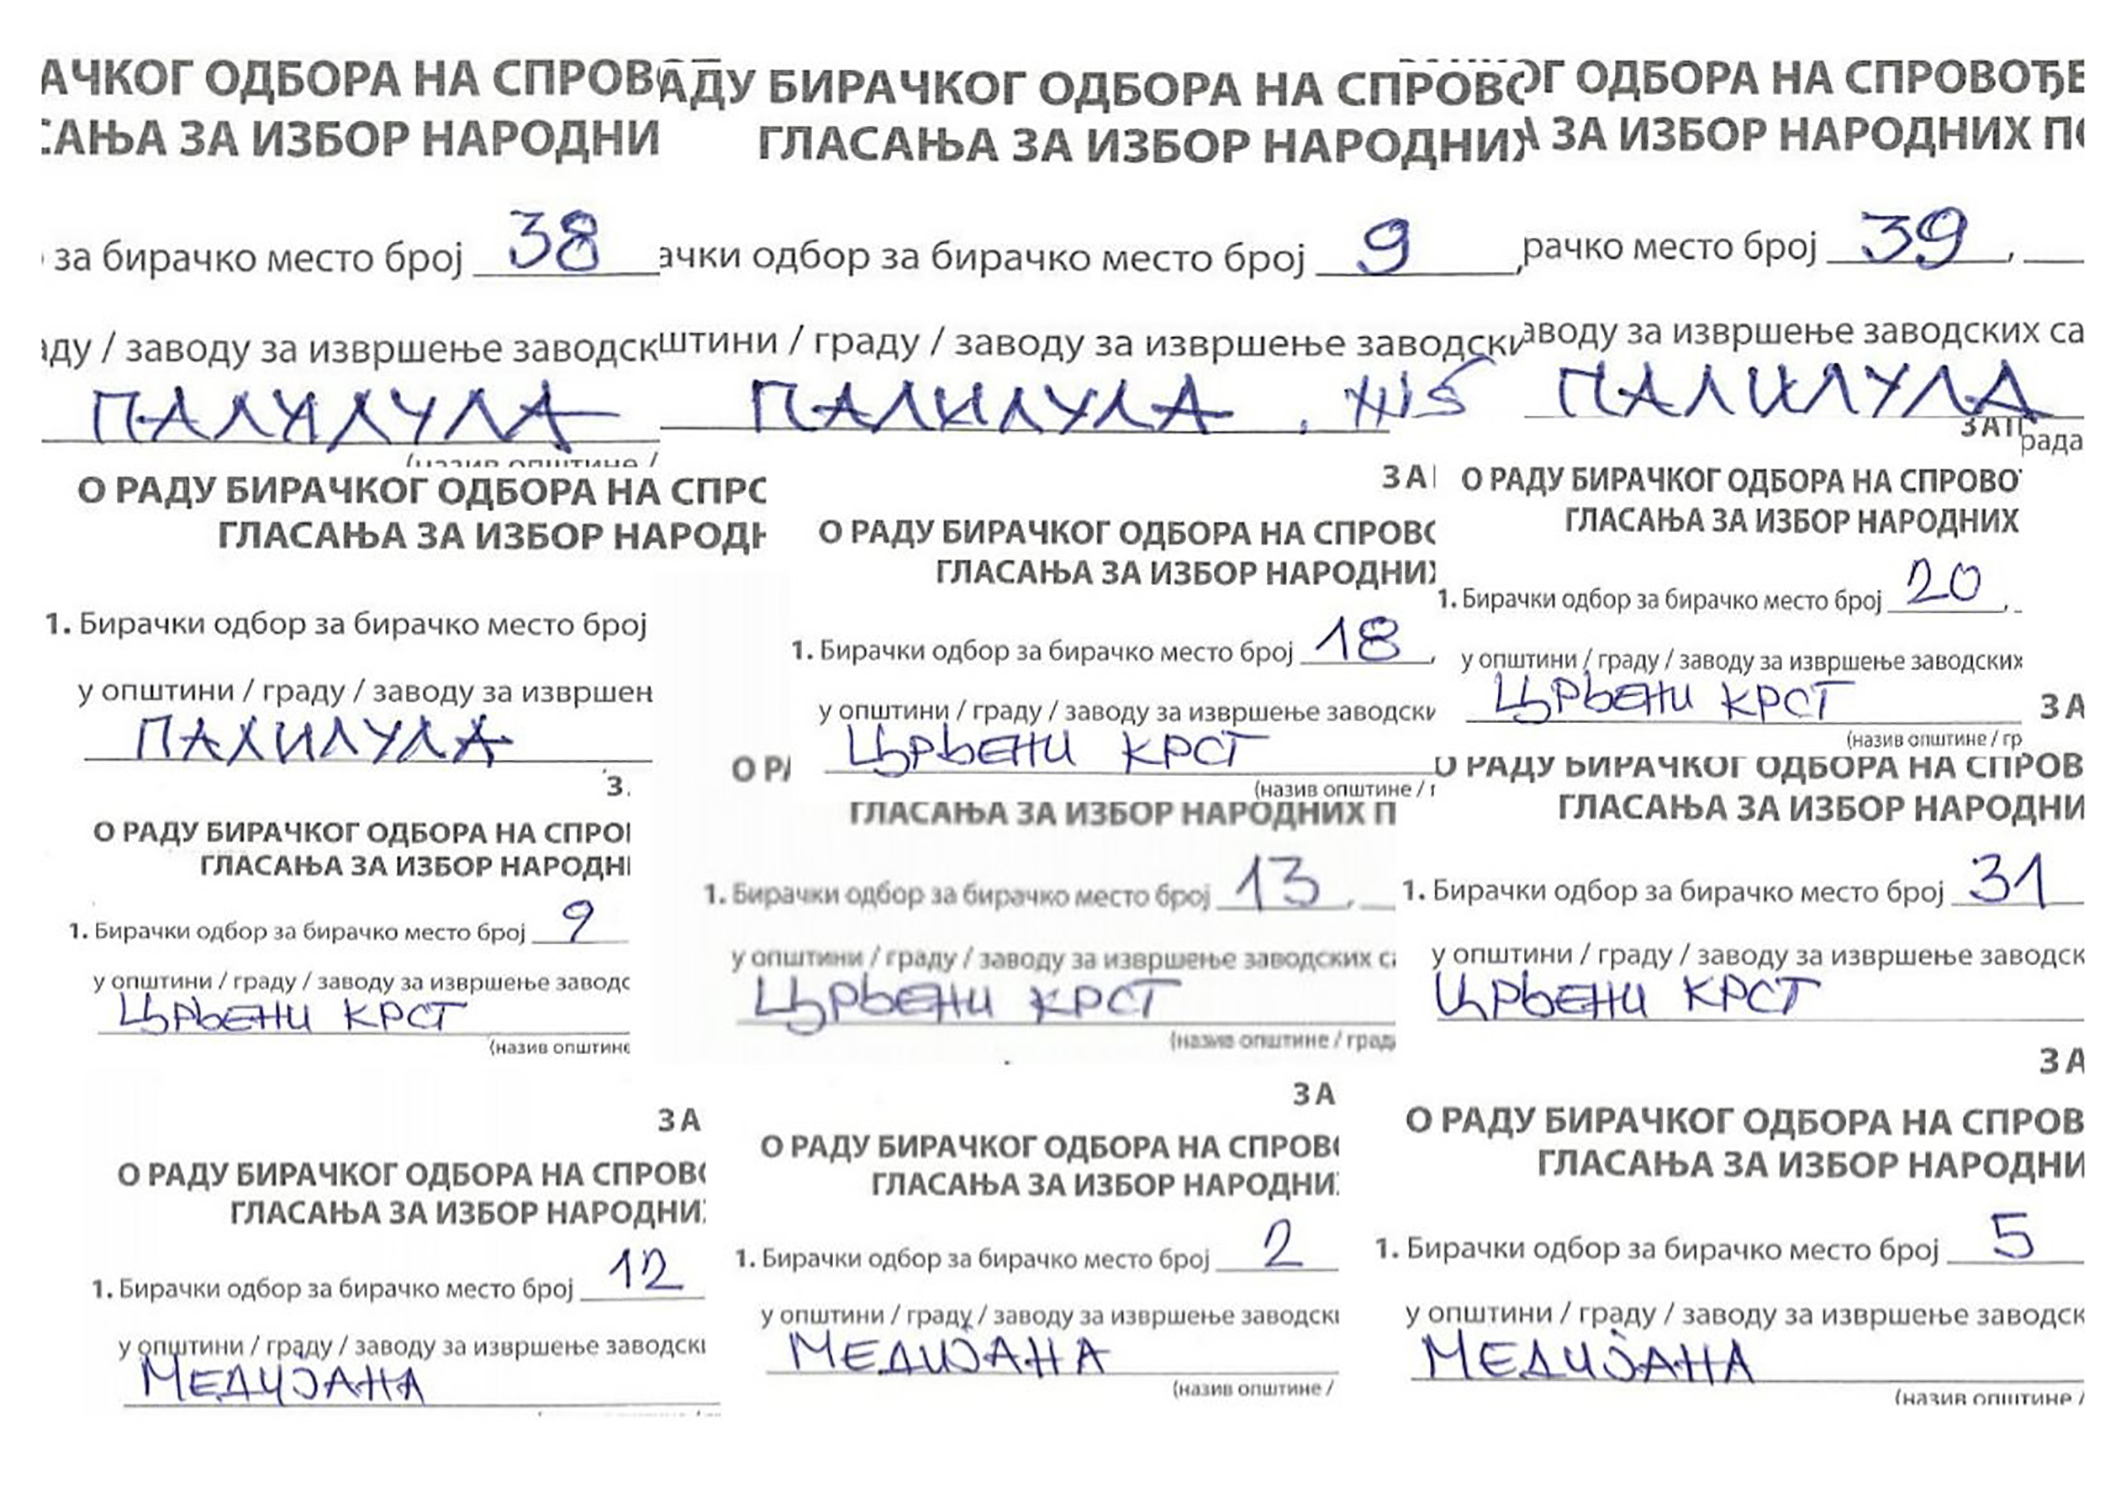 АЧКОГ ОДБОРА НА СПРОВО
САЊА ЗА ИЗБОР НАРОДНИ
за бирачко место број 38
аду / заводу за извршење заводск
ПАЛИЛУЛА
(назив општине /
АДУ БИРАЧКОГ ОДБОРА НА СПРОВО
ГЛАСАЊА ЗА ИЗБОР НАРОДНИХ
ачки одбор за бирачко место број 9,
штини / граду / заводу за извршење заводски
ПАЛИЛУЛА, NIŠ
ОГ ОДБОРА НА СПРОВОЂЕ
А ЗА ИЗБОР НАРОДНИХ ПО
рачко место број 39,
аводу за извршење заводских са
ПАЛИЛУЛА
ЗАП
рада
О РАДУ БИРАЧКОГ ОДБОРА НА СПРО
ГЛАСАЊА ЗА ИЗБОР НАРОДН
1. Бирачки одбор за бирачко место број
у општини / граду / заводу за извршењ
ПАЛИЛУЛА
ЗА
О РАДУ БИРАЧКОГ ОДБОРА НА СПРОВО
ГЛАСАЊА ЗА ИЗБОР НАРОДНИХ
1. Бирачки одбор за бирачко место број 18,
у општини / граду / заводу за извршење заводски
ЦРВЕНИ КРСТ
(назив општине / г
О РАДУ БИРАЧКОГ ОДБОРА НА СПРОВО
ГЛАСАЊА ЗА ИЗБОР НАРОДНИХ
1. Бирачки одбор за бирачко место број 20,
у општини / граду / заводу за извршење заводских
ЦРВЕНИ КРСТ
(назив општине / гр
З.
О РАДУ БИРАЧКОГ ОДБОРА НА СПРОВ
ГЛАСАЊА ЗА ИЗБОР НАРОДНИ
1. Бирачки одбор за бирачко место број 9
у општини / граду / заводу за извршење заводс
ЦРВЕНИ КРСТ
(назив општине
О РА
ГЛАСАЊА ЗА ИЗБОР НАРОДНИХ П
1. Бирачки одбор за бирачко место број 13,
у општини / граду / заводу за извршење заводских са
ЦРВЕНИ КРСТ
(назив општине / град
ЗА
О РАДУ БИРАЧКОГ ОДБОРА НА СПРОВ
ГЛАСАЊА ЗА ИЗБОР НАРОДНИ
1. Бирачки одбор за бирачко место број 31
у општини / граду / заводу за извршење заводск
ЦРВЕНИ КРСТ
ЗА
О РАДУ БИРАЧКОГ ОДБОРА НА СПРОВО
ГЛАСАЊА ЗА ИЗБОР НАРОДНИХ
1. Бирачки одбор за бирачко место број 12
у општини / граду / заводу за извршење заводски
МЕДИЈАНА
ЗА
О РАДУ БИРАЧКОГ ОДБОРА НА СПРОВО
ГЛАСАЊА ЗА ИЗБОР НАРОДНИ
1. Бирачки одбор за бирачко место број 2
у општини / граду / заводу за извршење заводски
МЕДИЈАНА
(назив општине /
ЗА
О РАДУ БИРАЧКОГ ОДБОРА НА СПРОВ
ГЛАСАЊА ЗА ИЗБОР НАРОДНИ
1. Бирачки одбор за бирачко место број 5
у општини / граду / заводу за извршење заводск
МЕДИЈАНА
(назив општине /